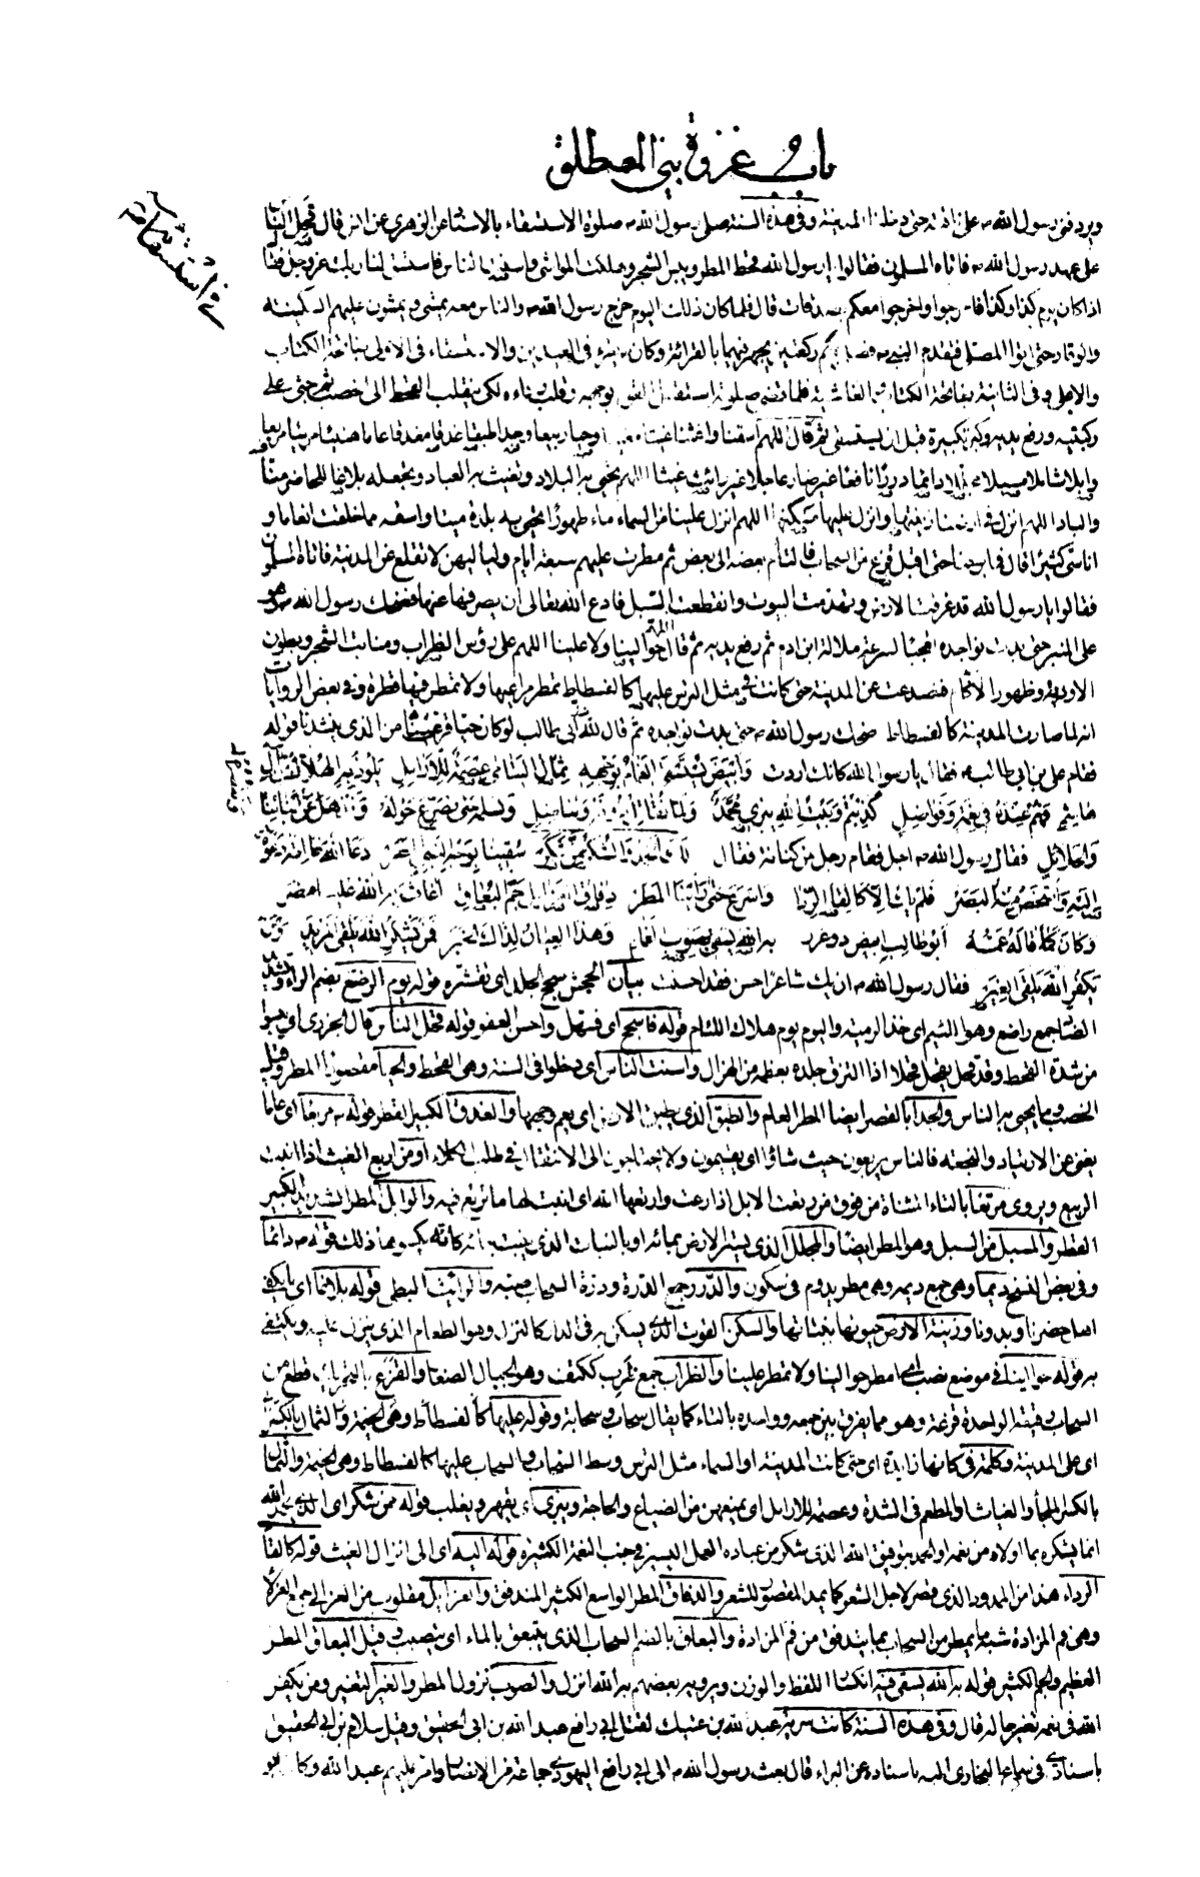 باب غزوة بني المصطلق
في استسقائه
ويردفني رسول الله على حتى دخلنا المدينة وفي هذه السنة صلى رسول الله صلوة الاستسقاء بالاسناد عن الزهري عن انس قال قحل الناس
على عهد رسول الله فاتاه المسلمون فقالوا يا رسول الله قحط المطر ويبس الشجر وهلكت المواشي واسنت الناس فاستسق لنا ربك عز وجل فقال
اذا كان يوم كذا وكذا فاخرجوا واخرجوا معكم بصدقات قال فلما كان ذلك اليوم خرج رسول الله والناس معه يمشي ويمشون عليهم السكينة
والوقار حتى اتوا المصلى فتقدم النبي فصلى بهم ركعتين يجهر فيهما بالقرائة وكان يقرء في العيدين والاستسقاء في الاولى بفاتحة الكتاب
والاعلى وفي الثانية بفاتحة الكتاب والغاشية فلما قضى صلوته استقبل القوم بوجهه وقلب رداءه لكي ينقلب القحط الى الخصب ثم جثى على
ركبتيه ورفع يديه وكبر تكبيرة قبل ان يستسقي ثم قال اللهم اسقنا واغثنا غيثا وحيا ربيعا وجدا طبقا غدقا مغدقا عاما هنيئا مريئا مريعا
وابلا شاملا مسبلا مجللا دائما دررا نافعا غير ضار عاجلا غير رائث غيثا اللهم تحيي به البلاد وتغيث به العباد وتجعله بلاغا للحاضر منا
والباد اللهم انزل في ارضنا زينتها وانزل عليها سكنها اللهم انزل علينا من السماء ماء طهورا تحيي به بلدة ميتا واسقه مما خلقت انعاما و
اناسي كثيرا قال فما برحنا حتى اقبل قزع من السحاب فالتام بعضه الى بعض ثم مطرت عليهم سبعة ايام ولياليهن لا تقلع عن المدينة فاتاه المسلمون
فقالوا يا رسول الله قد غرقت الارض وتهدمت البيوت وانقطعت السبل فادع الله تعالى ان يصرفها عنها فضحك رسول الله وهو
على المنبر حتى بدت نواجذه تعجبا لسرعة ملالة ابن ادم ثم رفع يديه ثم قال اللهم حوالينا ولا علينا اللهم على رؤس الظراب ومنابت الشجر وبطون
الاودية وظهور الاكام فتصدعت عن المدينة حتى كانت في مثل الترس عليها كالفسطاط تمطر مراعيها ولا تمطر فيها قطرة وفي بعض الروايات
انه لما صارت المدينة كالفسطاط ضحك رسول الله حتى بدت نواجذه ثم قال لله ابي طالب لو كان حيا قرت عيناه من الذي ينشدنا قوله
فقام علي بن ابي طالب فقال يا رسول الله كانك اردت وابيض يستسقى الغمام بوجهه ثمال اليتامى عصمة للارامل يلوذ به الهلاك من آل
هاشم فهم عنده في نعمة وفواضل كذبتم وبيت الله يبزى محمد ولما نقاتل دونه ونناضل ونسلمه حتى نصرع حوله ونذهل عن ابنائنا
والحلائل فقال رسول الله اجل فقام رجل من كنانة فقال لك الحمد والشكر ممن شكر سقينا بوجه النبي المطر دعا الله خالقه دعوة
اليه واشخص منه البصر فلم يك الا كالقاء الردا واسرع حتى راينا المطر دفاق العزائل جم البعاق اغاث به الله عليا مضر
وكان كما قاله عمه ابو طالب ابيض ذو غرر به الله يسقي بصوب الغمام وهذا العيان لذاك الخبر فمن يشكر الله يلقى المزيد ومن
يكفر الله يلقى الغير فقال رسول الله ان يك شاعرا حسن فقد احسنت بيان الجحش سحج الجلد اي تقشره قوله يوم الرضع بضم الراء وتشديد
الضاد جمع راضع وهو اللئيم اي خذ الرمية واليوم يوم هلاك اللئام قوله فاسجح اي فسهل واحسن العفو قوله قحل الناس قال الجزري اي يبسوا
من شدة القحط وقد قحل يقحل قحلا اذا التزق جلده بعظمه من الهزال واسنت الناس اي دخلوا في السنة وهي القحط والحيا مقصورا المطر وقيل
الخصب وما يحيى به الناس والجدا بالقصر ايضا المطر العام والطبق الذي يطبق الارض اي يعم وجهها والغدق الكبير القطر قوله مريعا اي عاما
يغني عن الارتياد والنجعة فالناس يربعون حيث شاؤا اي يقيمون ولا يحتاجون الى الانتقال في طلب الكلاء او من اربع الغيث اذا انبت
الربيع ويروى مرتعا بالتاء المثناة من فوق من رتعت الابل اذا رعت وارتعها الله اي انبت لها ما ترتع فيه والوابل المطر الشديد الكبير
القطر والمسبل من السبل وهو المطر ايضا والمجلل الذي يستر الارض بمائه او بالنبات الذي ينبت به كانه يكسوها ذلك قوله دائما
وفي بعض النسخ ديما وهي جمع ديمه وهي مطر يدوم في سكون والدرر جمع الدرة ودرة السحاب صبه والرائث البطي قوله بلاغا اي ما يكفي
اهل حضرنا وبدونا وزينة الارض حيوتها بنباتها والسكن القوت الذي يسكن به في الدار كالنزل وهو الطعام الذي ينزل عليه ويكتفى
به قوله حوالينا في موضع نصب اي امطر حوالينا ولا تمطر علينا والظراب جمع ظرب ككتف وهو الجبال الصغار والقزع بالتحريك قطع من
السحاب رقيقة الواحدة قزعة وهو مما يفرق بين جمعه وواحده بالتاء كما يقال سحاب وسحابة وقوله عليها كالفسطاط وهي الخيمة والثمال بالكسر
اي على المدينة وكلمة في كانها زايدة اي حتى كانت المدينة او السماء مثل الترس وسط السحاب والسحاب عليها كالفسطاط وهي الخيمة والثمال
بالكسر الملجأ والغياث والمطعم في الشدة وعصمة للارامل اي يمنعهن من الضياع والحاجة ويبزى اي يقهر ويغلب قوله ممن شكر اي الذي يحمد الله
انما يشكره بما اولاه من نعمه او الحمد بتوفيق الله الذي شكر من عباده العمل اليسير في جنب النعمة الكثيرة قوله اليه اي الى انزال الغيث قوله كالقاء
الرداء هذا من الممدود الذي قصر لاجل الشعر كما يمد المقصور للشعر والدفاق المطر الواسع الكثير المندفق والعزائل مقلوب من العزالي جمع العزلاء
وهي فم المزادة شبه ما يمطر من السحاب بما يتدفق من فم المزادة والبعاق بالضم السحاب الذي يتبعق بالماء اي يتصبب وقيل البعاق المطر
العظيم والجم الكثير قوله به الله يسقي فيه انكسار اللفظ والوزن ويرويه بعضهم به الله انزل والصوب نزول المطر والغير التغير ومن يكفر
الله في نعمه تغير حاله قال وفي هذه السنة كانت سرية عبد الله بن عتيك لقتل ابي رافع عبد الله بن ابي الحقيق وقيل سلام بن ابي الحقيق
باسنادي في سماعنا البخاري اليه باسناده عن البراء قال بعث رسول الله الى ابي رافع اليهودي جماعة من الانصار وامر عليهم عبد الله وكان هو